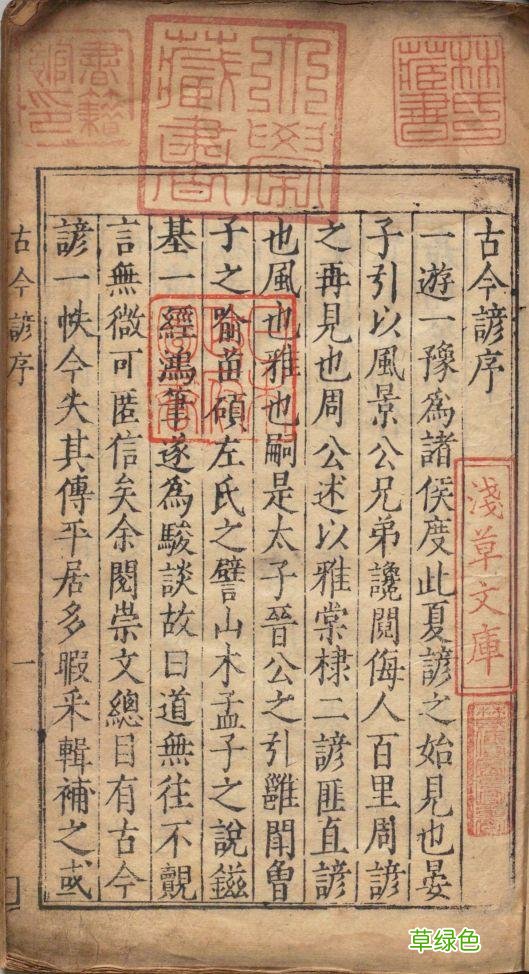 林氏藏書
大學藏書
書籍館印
古今諺序
一遊一豫爲諸侯度此夏諺之始見也晏
子引以風景公兄弟讒鬩侮人百里周諺
之再見也周公述以雅棠棣二諺匪直諺
也風也雅也嗣是太子晉公之引雝閗曾
子之喻苗碩左氏之譬山木孟子之說鎡
基一經鴻筆遂爲駿談故曰道無往不覿
言無微可匿信矣余閱崇文總目有古今
諺一帙今失其傳平居多暇采輯補之或
古今諺序
一
淺草文庫
草绿色